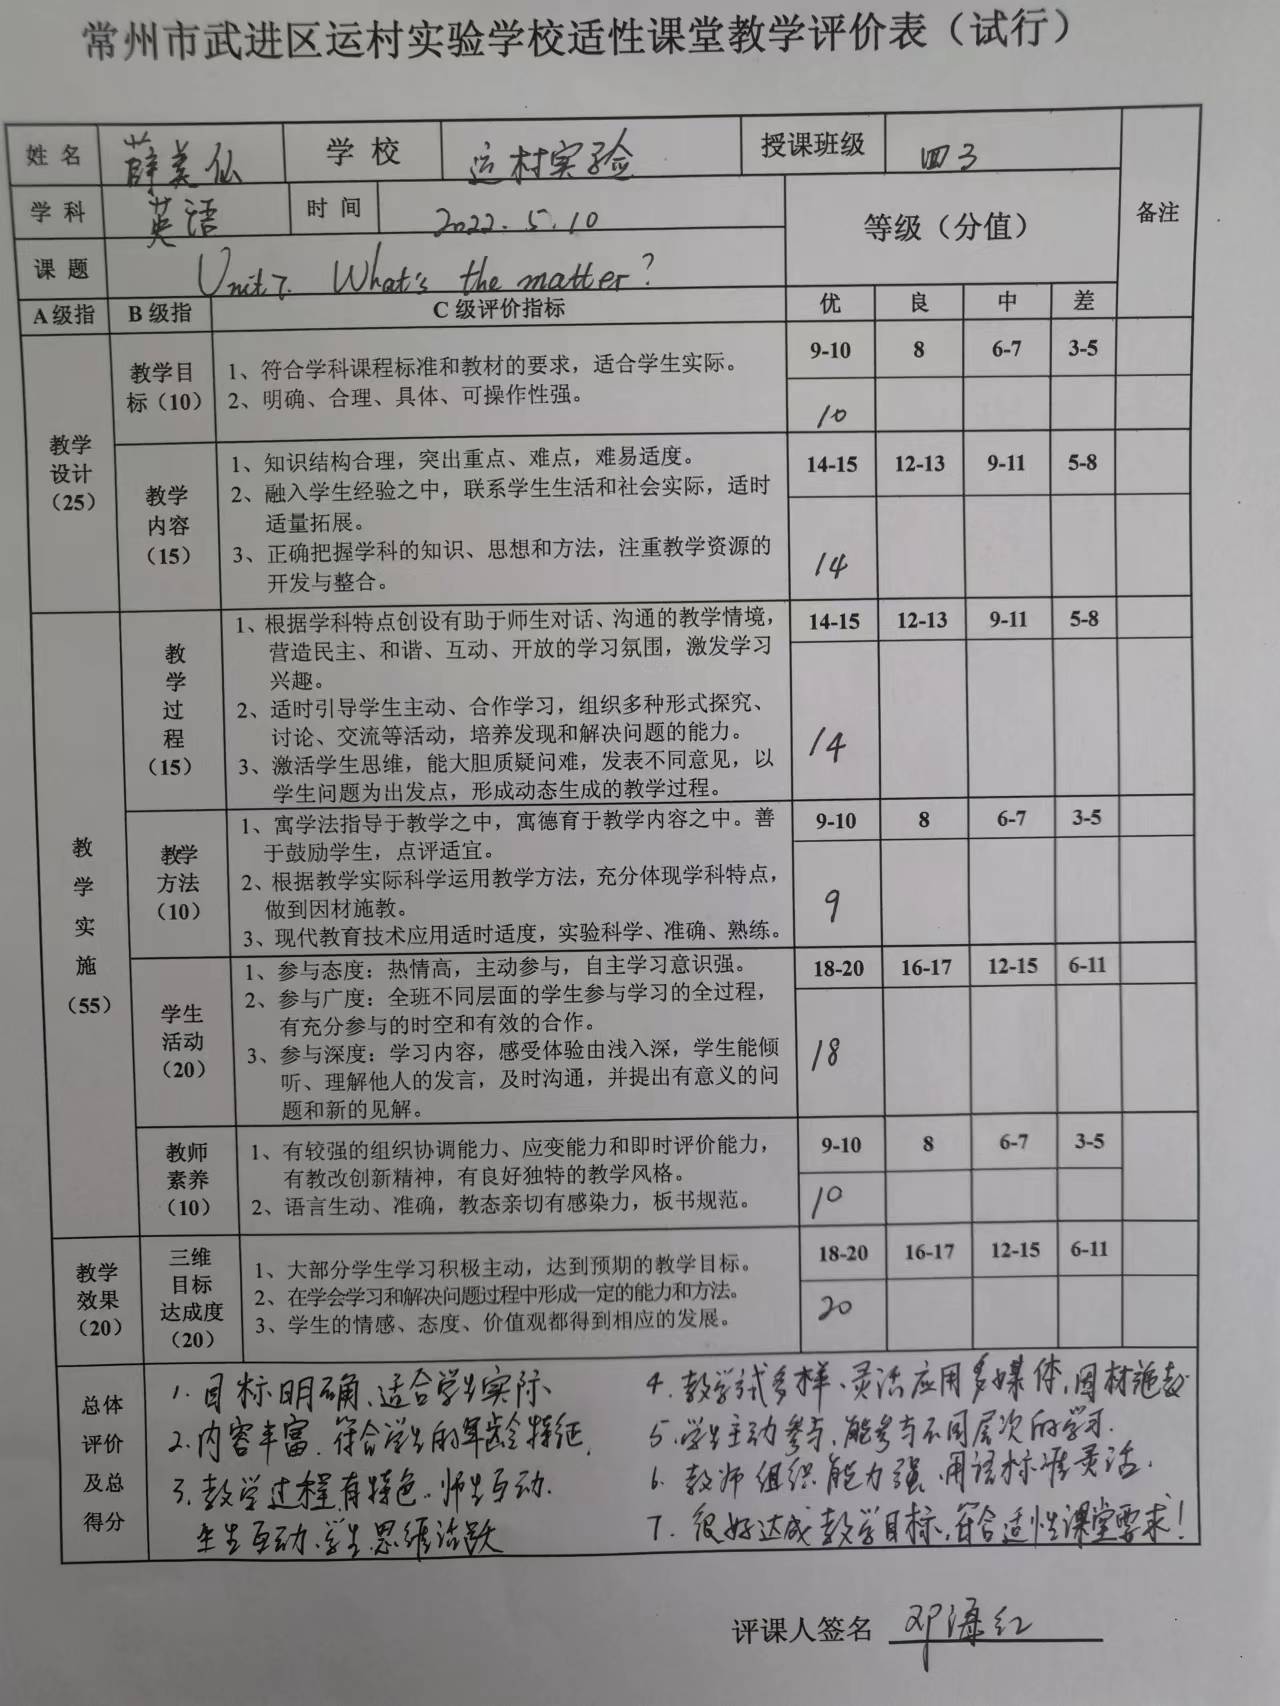 常州市武进区运村实验学校适性课堂教学评价表（试行）
姓 名 薛美仙 学 校 运村实验 授课班级 四3 备注
学 科 英语 时 间 2022.5.10 等级（分值）
课 题 Unit7. What's the matter?
A 级指 B 级指 C 级评价指标 优 良 中 差
教学设计（25）
教学目标（10）
1、符合学科课程标准和教材的要求，适合学生实际。
2、明确、合理、具体、可操作性强。
9-10 8 6-7 3-5
10
教学内容（15）
1、知识结构合理，突出重点、难点，难易适度。
2、融入学生经验之中，联系学生生活和社会实际，适时
适量拓展。
3、正确把握学科的知识、思想和方法，注重教学资源的
开发与整合。
14-15 12-13 9-11 5-8
14
教学实施（55）
教学过程（15）
1、根据学科特点创设有助于师生对话、沟通的教学情境，
营造民主、和谐、互动、开放的学习氛围，激发学习
兴趣。
2、适时引导学生主动、合作学习，组织多种形式探究、
讨论、交流等活动，培养发现和解决问题的能力。
3、激活学生思维，能大胆质疑问难，发表不同意见，以
学生问题为出发点，形成动态生成的教学过程。
14-15 12-13 9-11 5-8
14
教学方法（10）
1、寓学法指导于教学之中，寓德育于教学内容之中。善
于鼓励学生，点评适宜。
2、根据教学实际科学运用教学方法，充分体现学科特点，
做到因材施教。
3、现代教育技术应用适时适度，实验科学、准确、熟练。
9-10 8 6-7 3-5
9
学生活动（20）
1、参与态度：热情高，主动参与，自主学习意识强。
2、参与广度：全班不同层面的学生参与学习的全过程，
有充分参与的时空和有效的合作。
3、参与深度：学习内容，感受体验由浅入深，学生能倾
听、理解他人的发言，及时沟通，并提出有意义的问
题和新的见解。
18-20 16-17 12-15 6-11
18
教师素养（10）
1、有较强的组织协调能力、应变能力和即时评价能力，
有教改创新精神，有良好独特的教学风格。
2、语言生动、准确，教态亲切有感染力，板书规范。
9-10 8 6-7 3-5
10
教学效果（20）
三维目标达成度（20）
1、大部分学生学习积极主动，达到预期的教学目标。
2、在学会学习和解决问题过程中形成一定的能力和方法。
3、学生的情感、态度、价值观都得到相应的发展。
18-20 16-17 12-15 6-11
20
总体评价及总得分
1. 目标明确、适合学生实际、
2. 内容丰富、符合学生的年龄特征.
3. 教学过程有特色、师生互动.
生生互动、学生思维活跃
4. 教学式多样、灵活应用多媒体，因材施教
5. 学生主动参与、能参与不同层次的学习.
6. 教师组织能力强、用语标准灵活.
7. 很好达成教学目标、符合适性课堂要求！
评课人签名 邓海红